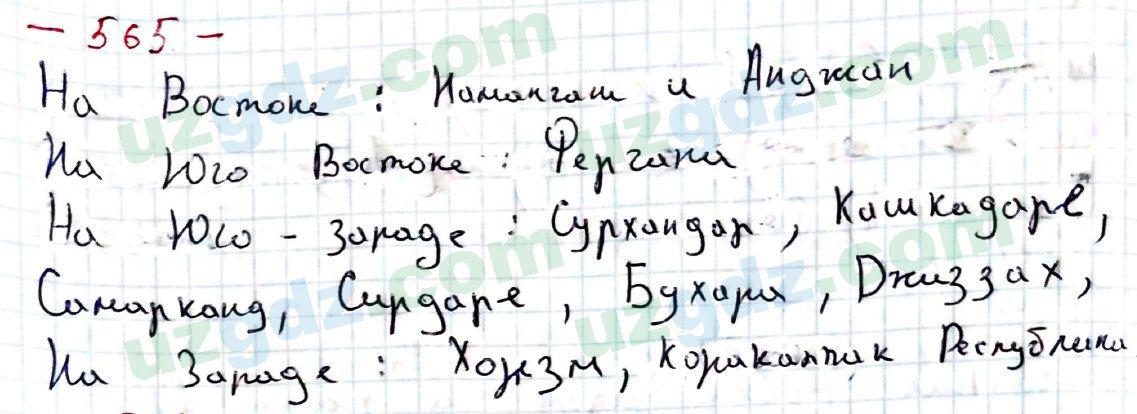 - 565 -
На Востоке : Наманган и Анджан -
На Юго Востоке : Фергана
На Юго - Западе : Сурхандар, Кашкадарё,
Самарканд, Сирдарё, Бухара, Джиззах,
На Западе : Хорезм, Коракалпак Республика
uzgdz.com
uzgdz.com
uzgdz.com
uzgdz.com